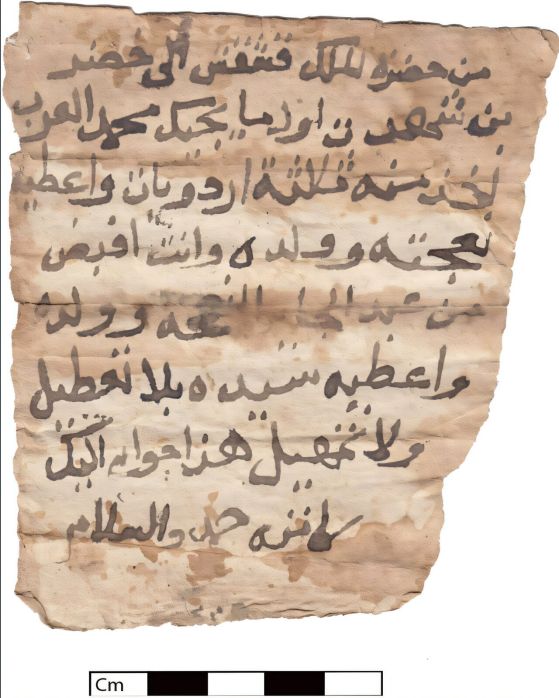 من حضرة الملك قشقش الى خضر
بن شهدت اول ما يجيك محمد العرب
تخذ منه ثلاثة اردويات واعطيه
نعجته وولده وانت اقبض
من عبد النعجه وولده
واعطيه سيده بلا تعطيل
ولا تمهيل هذا جوابي اليك
كاتبه حمد والسلام